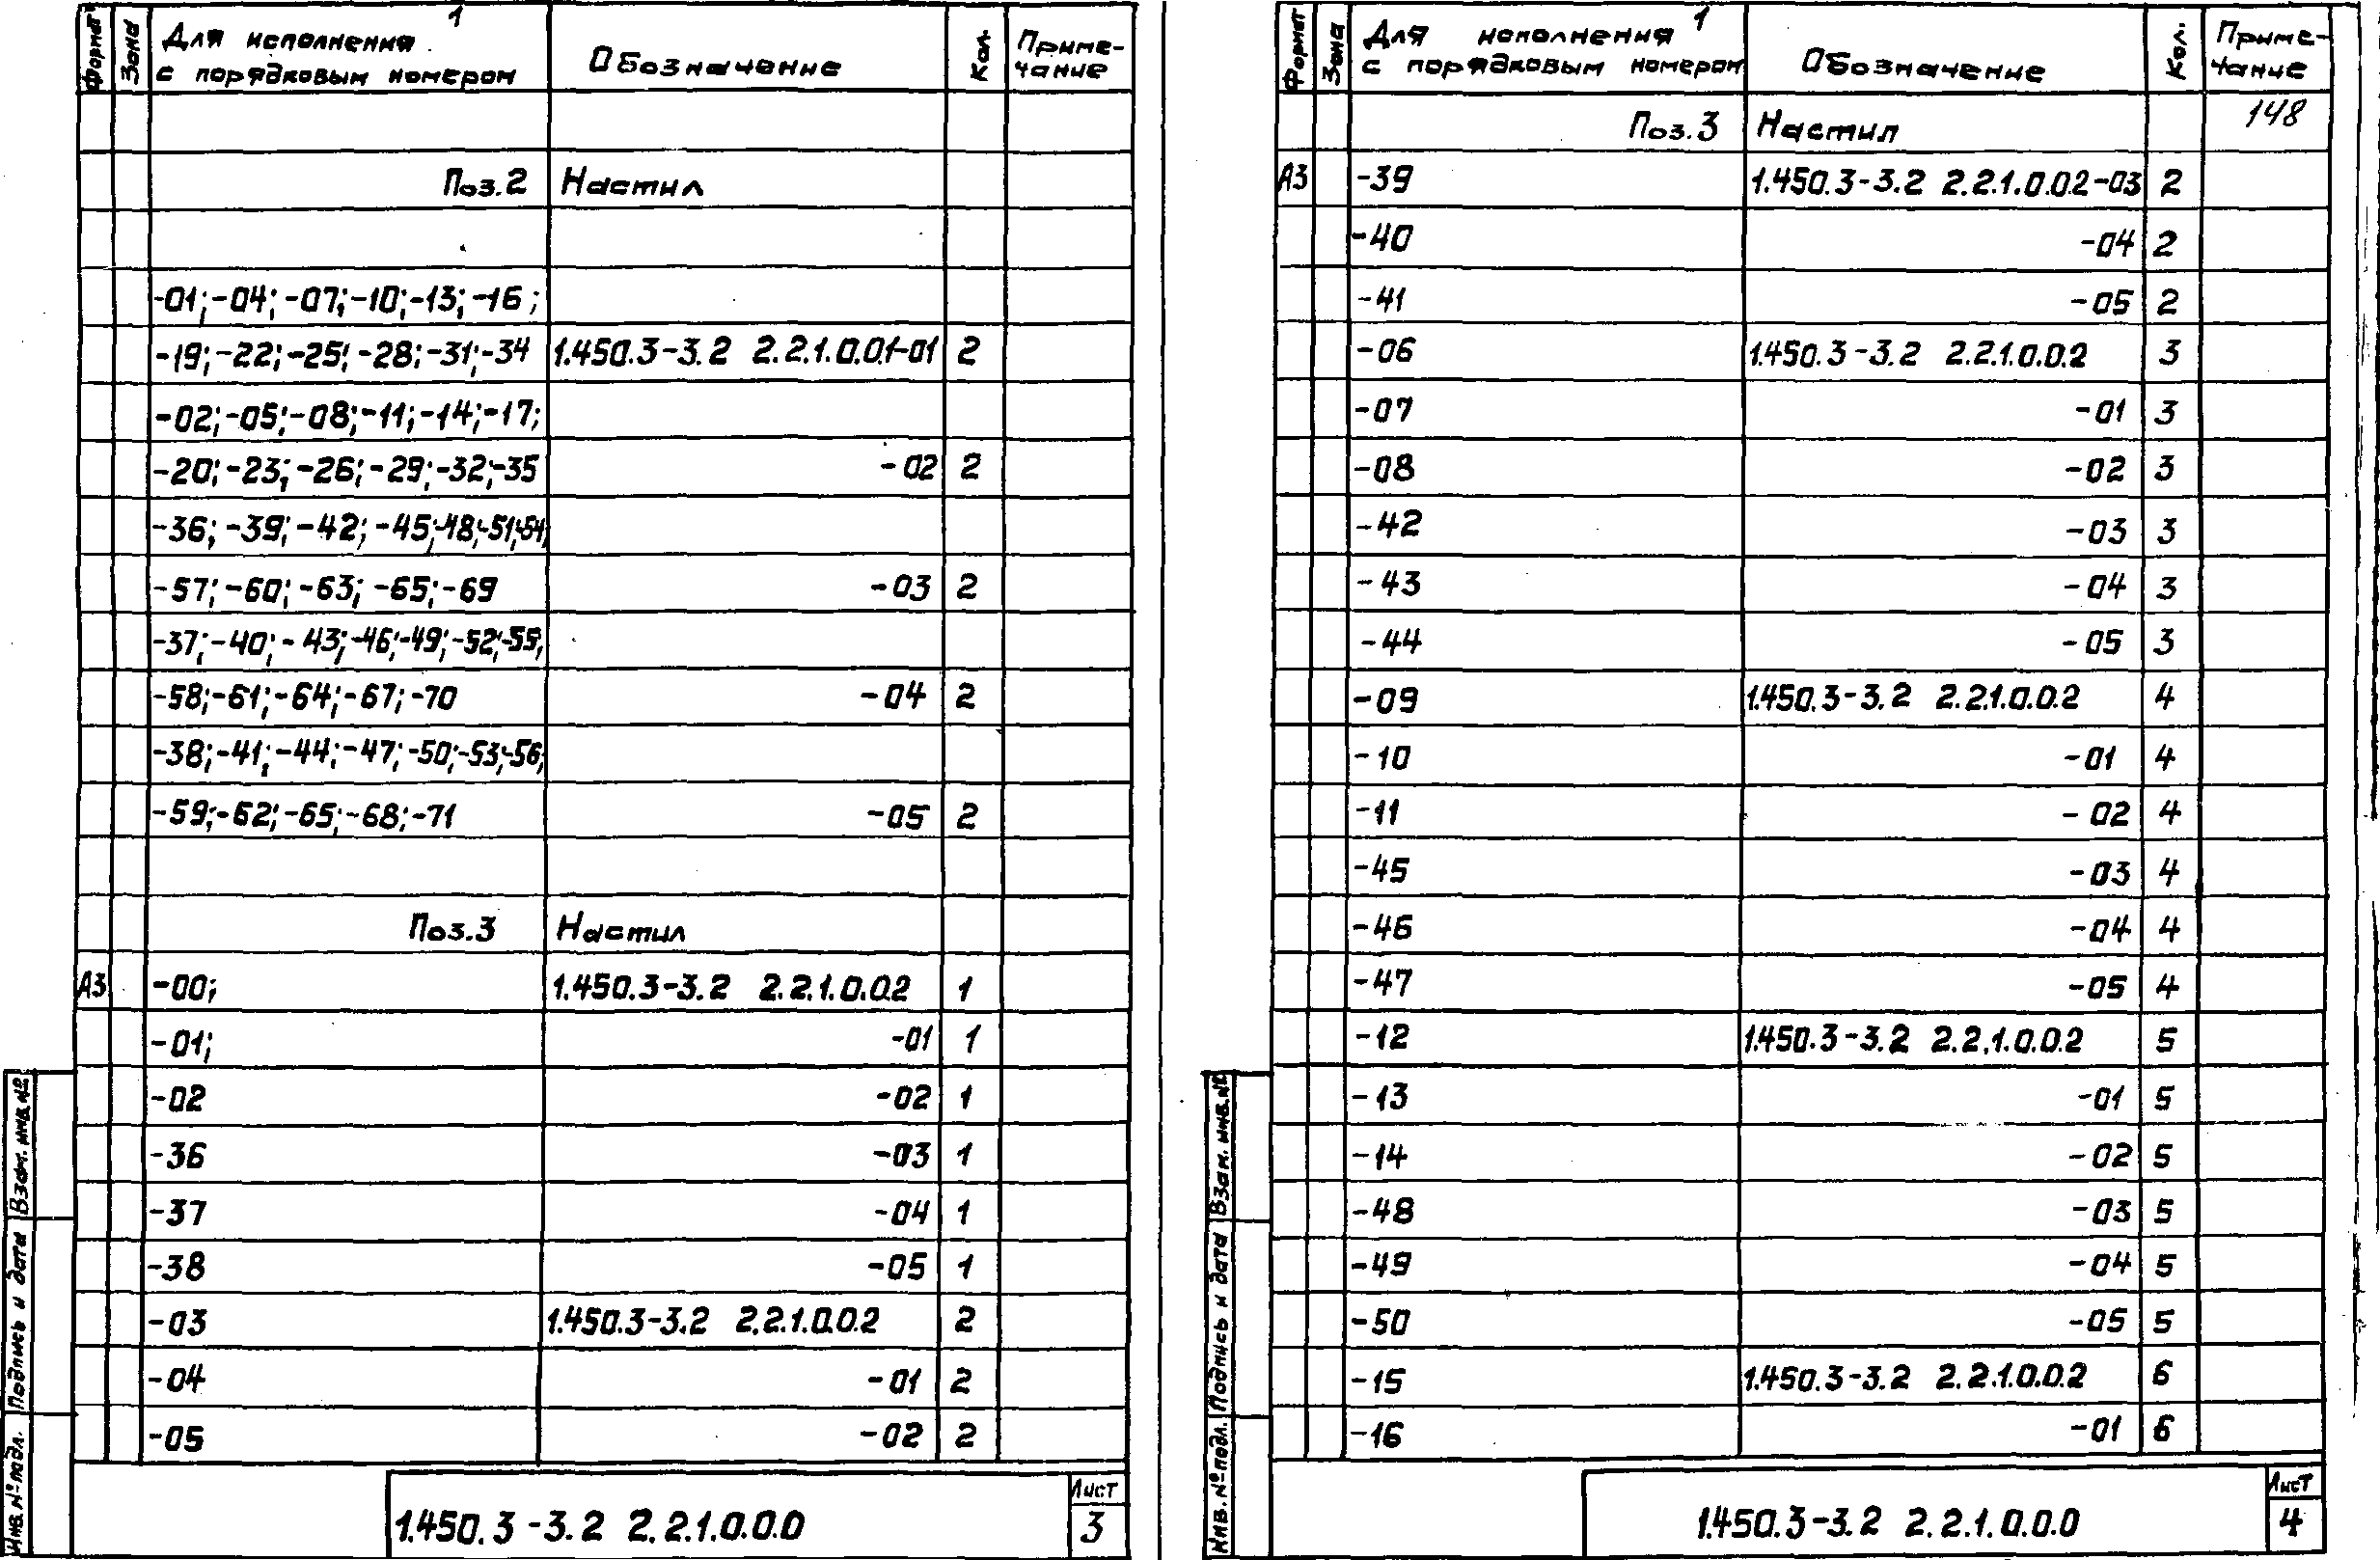 Формат Зона Для исполнения с порядковым номером 1 Обозначение Кол. Примечание
Поз.2 Настил
-01; -04; -07; -10; -13; -16;
-19; -22; -25; -28; -31; -34 1.450.3-3.2 2.2.1.0.01-01 2
-02; -05; -08; -11; -14; -17;
-20; -23; -26; -29; -32; -35 -02 2
-36; -39; -42; -45; -48; -51; -54;
-57; -60; -63; -65; -69 -03 2
-37; -40; -43; -46; -49; -52; -55;
-58; -61; -64; -67; -70 -04 2
-38; -41; -44; -47; -50; -53; -56;
-59; -62; -65; -68; -71 -05 2
Поз.3 Настил
А3 -00; 1.450.3-3.2 2.2.1.0.0.2 1
-01; -01 1
-02 -02 1
-36 -03 1
-37 -04 1
-38 -05 1
-03 1.450.3-3.2 2.2.1.0.0.2 2
-04 -01 2
-05 -02 2
Инв.№подл. Подпись и дата Взам. инв.№
1.450.3-3.2 2.2.1.0.0.0 Лист 3
Формат Зона Для исполнения с порядковым номером 1 Обозначение Кол. Примечание
Поз.3 Настил 148
А3 -39 1.450.3-3.2 2.2.1.0.0.2-03 2
-40 -04 2
-41 -05 2
-06 1.450.3-3.2 2.2.1.0.0.2 3
-07 -01 3
-08 -02 3
-42 -03 3
-43 -04 3
-44 -05 3
-09 1.450.3-3.2 2.2.1.0.0.2 4
-10 -01 4
-11 -02 4
-45 -03 4
-46 -04 4
-47 -05 4
-12 1.450.3-3.2 2.2.1.0.0.2 5
-13 -01 5
-14 -02 5
-48 -03 5
-49 -04 5
-50 -05 5
-15 1.450.3-3.2 2.2.1.0.0.2 6
-16 -01 6
Инв.№подл. Подпись и дата Взам. инв.№
1.450.3-3.2 2.2.1.0.0.0 Лист 4